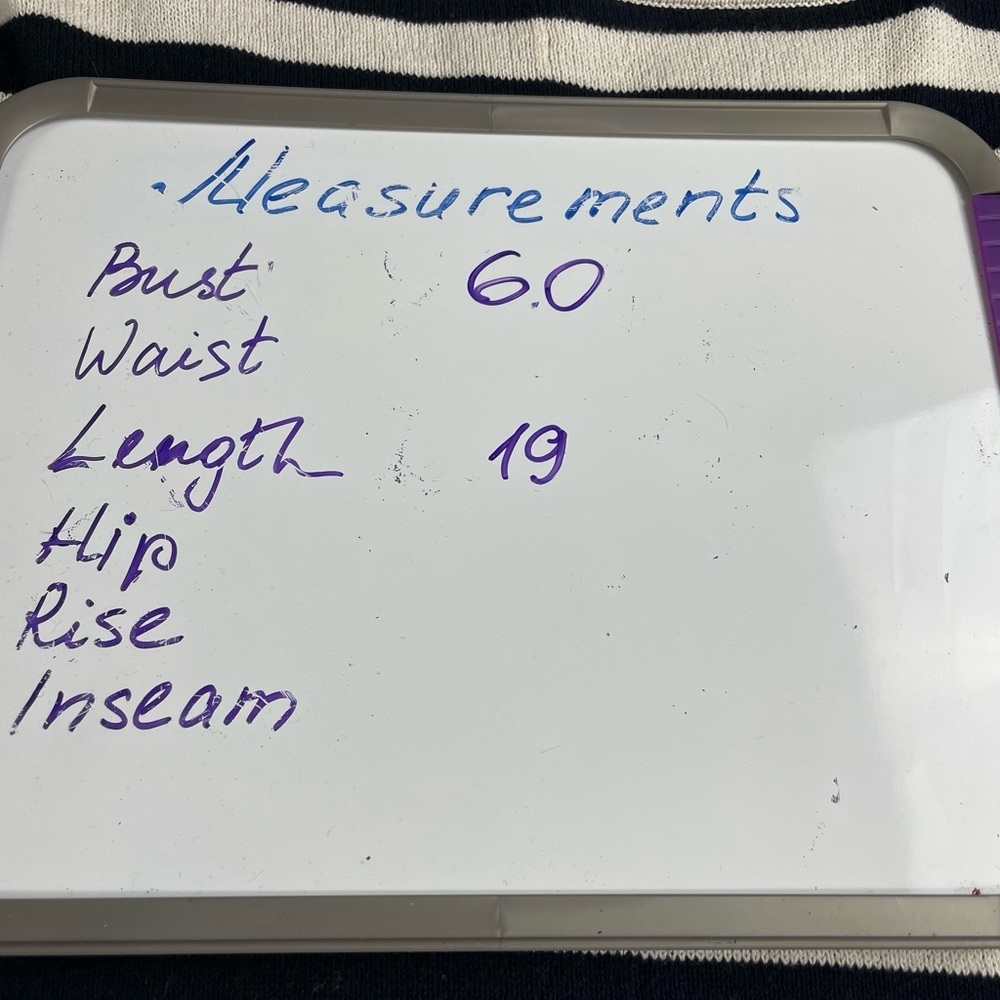 Measurements
Bust 60
Waist
Length 19
Hip
Rise
Inseam